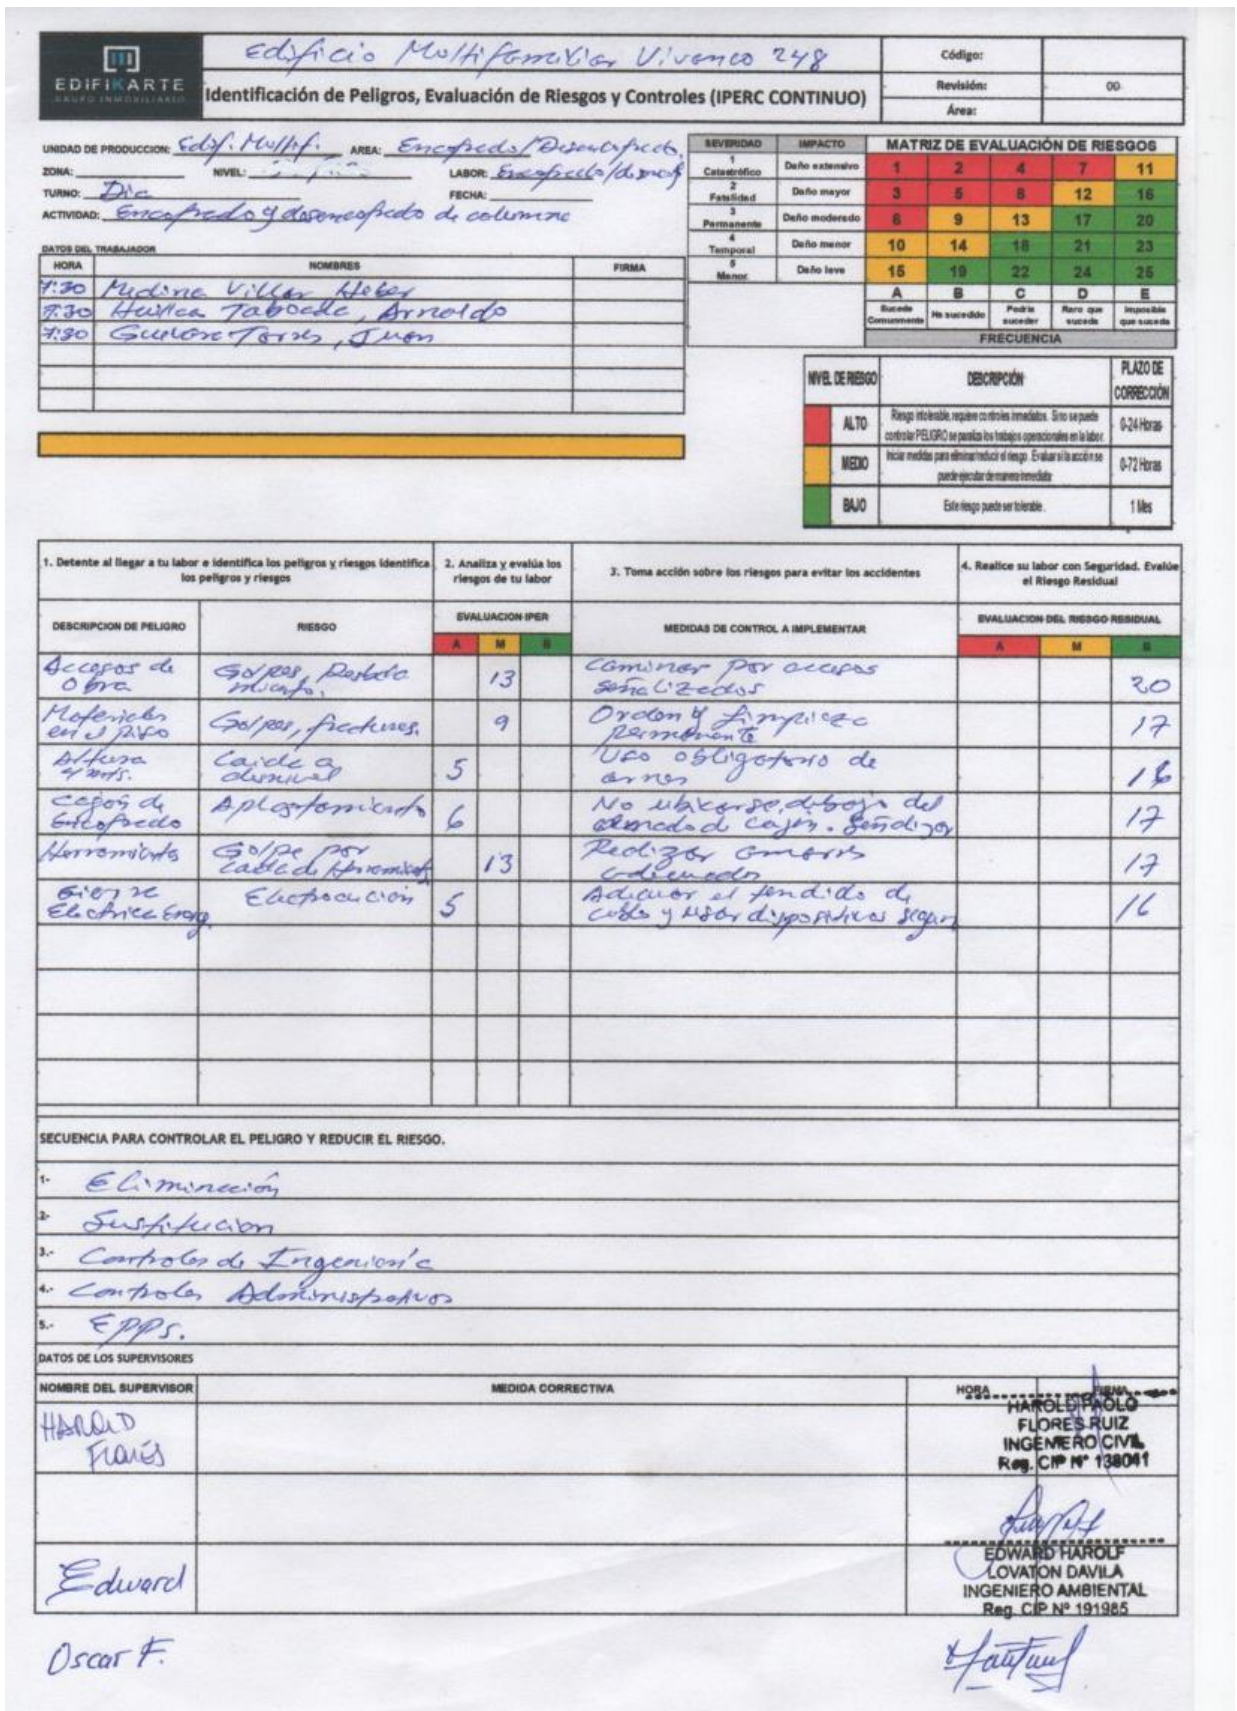 EDIFIKARTE
GRUPO INMOBILIARIO
Edificio Multifamiliar Vivanco 248
Identificación de Peligros, Evaluación de Riesgos y Controles (IPERC CONTINUO)
Código:
Revisión: 00
Área:
UNIDAD DE PRODUCCION: Edif. Multif. AREA: Encofrado/Desencofrado
ZONA: NIVEL: LABOR: Encofrado/desencof
TURNO: Dia FECHA:
ACTIVIDAD: Encofrado y desencofrado de columna
DATOS DEL TRABAJADOR
HORA NOMBRES FIRMA
7:30 Medina Villar Heber
7:30 Huillca Taboada, Arnoldo
7:30 Guevara Torres, Juan
SEVERIDAD IMPACTO MATRIZ DE EVALUACIÓN DE RIESGOS
1 Catastrófico Daño extensivo 1 2 4 7 11
2 Fatalidad Daño mayor 3 5 8 12 16
3 Permanente Daño moderado 6 9 13 17 20
4 Temporal Daño menor 10 14 18 21 23
5 Menor Daño leve 15 19 22 24 25
A B C D E
Sucede Comunmente Ha sucedido Podría suceder Raro que suceda Imposible que suceda
FRECUENCIA
NIVEL DE RIESGO DESCRIPCIÓN PLAZO DE CORRECCIÓN
ALTO Riesgo intolerable, requiere controles inmediatos. Si no se puede controlar PELIGRO se paraliza los trabajos operacionales en la labor. 0-24 Horas
MEDIO Iniciar medidas para eliminar/reducir el riesgo. Evaluar si la acción se puede ejecutar de manera inmediata 0-72 Horas
BAJO Este riesgo puede ser tolerable. 1 Mes
1. Detente al llegar a tu labor e identifica los peligros y riesgos identifica los peligros y riesgos
2. Analiza y evalúa los riesgos de tu labor
3. Toma acción sobre los riesgos para evitar los accidentes
4. Realice su labor con Seguridad. Evalúe el Riesgo Residual
DESCRIPCION DE PELIGRO RIESGO EVALUACION IPER MEDIDAS DE CONTROL A IMPLEMENTAR EVALUACION DEL RIESGO RESIDUAL
A M B A M B
Accesos de Obra Golpes, Resbalamiento. 13 Caminar por accesos señalizados 20
Materiales en el piso Golpes, fracturas. 9 Orden y Limpieza permanente 17
Altura 4 mts. Caida a desnivel 5 Uso obligatorio de arnes 16
Cajón de Encofrado Aplastamiento 6 No ubicarse debajo del armado de cajón. Señalizar 17
Herramientas Golpe por caida de Herramientas 13 Realizar amarres adecuados 17
Electrica Energ. Electrocución 5 Adecuar el tendido de cable y usar dispositivos segur 16
SECUENCIA PARA CONTROLAR EL PELIGRO Y REDUCIR EL RIESGO.
1- Eliminación
2- Sustitucion
3.- Controles de Ingeniería
4.- Controles Administrativos
5.- EPPs.
DATOS DE LOS SUPERVISORES
NOMBRE DEL SUPERVISOR MEDIDA CORRECTIVA HORA FIRMA
HAROLD FLORES
HAROLD PAOLO
FLORES RUIZ
INGENIERO CIVIL
Reg. CIP N° 138041
Edward
EDWARD HAROLF
LOVATON DAVILA
INGENIERO AMBIENTAL
Reg. CIP Nº 191985
Oscar F.